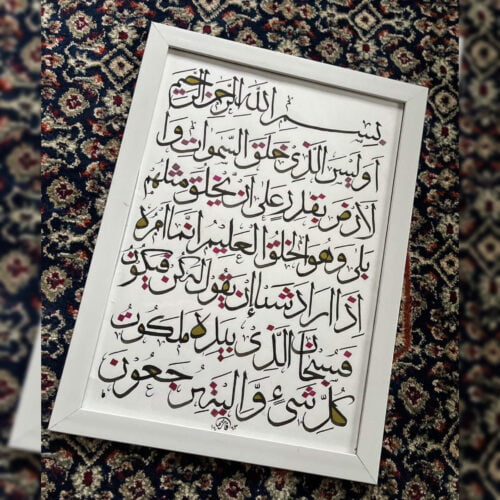 بسم الله الرحمن الرحيم
اوليس الذى خلق السموات وا
لارض بقدر على ان يخلق مثلهم
بلى وهو الخلق العليم انما امره
اذا اراد شيئا ان يقول له كن فيكون
فسبحان الذى بيده ملكوت
كل شئ واليه ترجعون